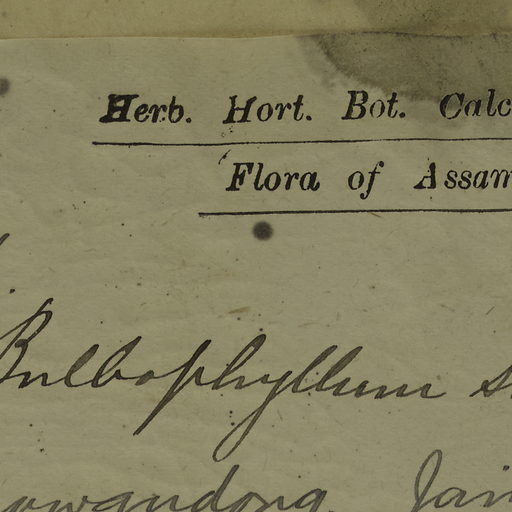 Herb. Hort. Bot. Calc
Flora of Assam
Bulbophyllum s
owandong. Jain